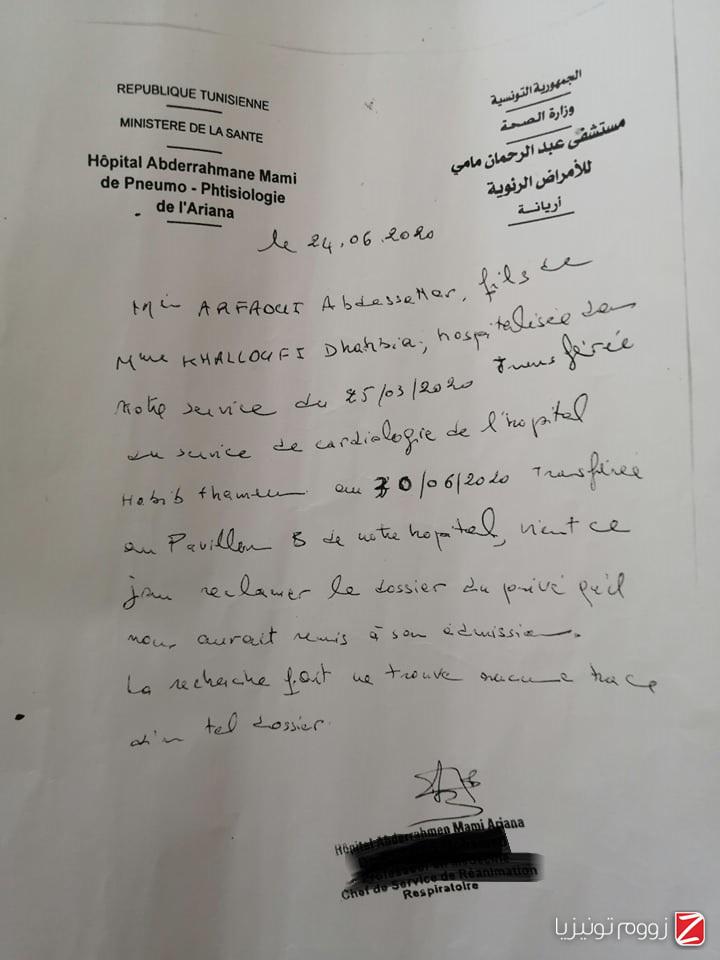 REPUBLIQUE TUNISIENNE
MINISTERE DE LA SANTE
Hôpital Abderrahmane Mami
de Pneumo - Phtisiologie
de l'Ariana
الجمهورية التونسية
وزارة الصحة
مستشفى عبد الرحمان مامي
للأمراض الرئوية
أريانة
le 24.06.2020
ARFAOUI Abdessettar, fils de
Mme KHALLOUFI Dhahbia, hospitalisée dans
notre service du 25/03/2020 transférée
du service de cardiologie de l'hopital
Habib thameur au 30/06/2020 Transférée
au Pavillon B de notre hopital, vient ce
jour reclamer le dossier du privé qu'il
nous aurait remis à son admission.
La recherche fait ne trouve aucune trace
d'un tel dossier.
Hôpital Abderrahmen Mami Ariana
Professeur en Médecine
Chef de Service de Réanimation
Respiratoire
زووم تونيزيا
Z